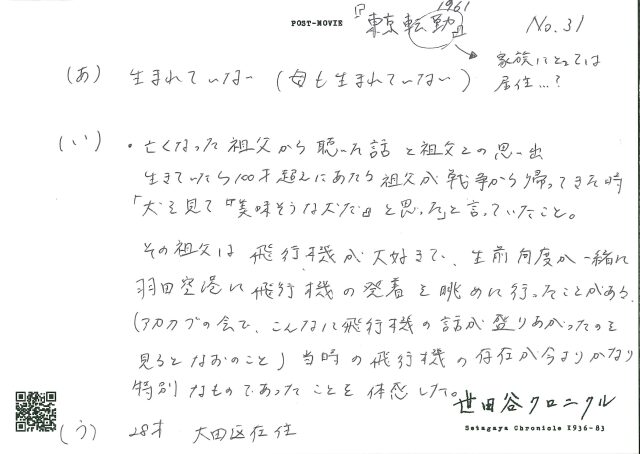 POST-MOVIE 『東京転勤』 1961 No.31
家族にとっては
居住…?
(あ) 生まれていない (母も生まれていない)
(い) ・亡くなった祖父から聴いた話と祖父との思い出
生きていたら100才超えにあたる祖父が戦争から帰ってきた時
「犬を見て『美味そうな犬だ』と思った」と言っていたこと。
その祖父は飛行機が大好きで、生前何度か一緒に
羽田空港に飛行機の発着を眺めに行ったことがある。
(アカカブの会で、こんなに飛行機の話が盛りあがったのを
見るとなおのこと) 当時の飛行機の存在が今よりかなり
特別なものであったことを体感した。
世田谷クロニクル
Setagaya Chronicle 1936-83
(う) 28才 大田区在住